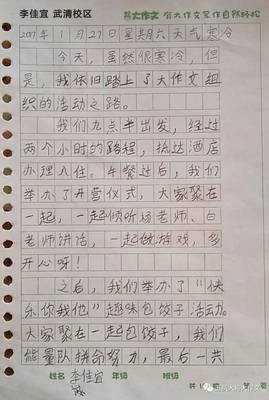 李佳宜 武清校区
大作文 有大作文写作自然轻松
1月27日星期六天气寒冷
今天，虽然很寒冷，但
是，我依旧踏上了大作文组
织的活动之路。
我们九点半出发，经过
两个小时的路程，抵达酒店
办理入住。午餐过后，我们
举办了开营仪式，大家聚在
一起，一起倾听杨老师、白
老师讲话，一起做游戏，多
开心呀！
之后，我们举办了“快
乐你我他”趣味包饺子活动。
大家聚在一起包饺子，我们
能量队拼命努力，最后一共
姓名 李佳宜 年级 班级